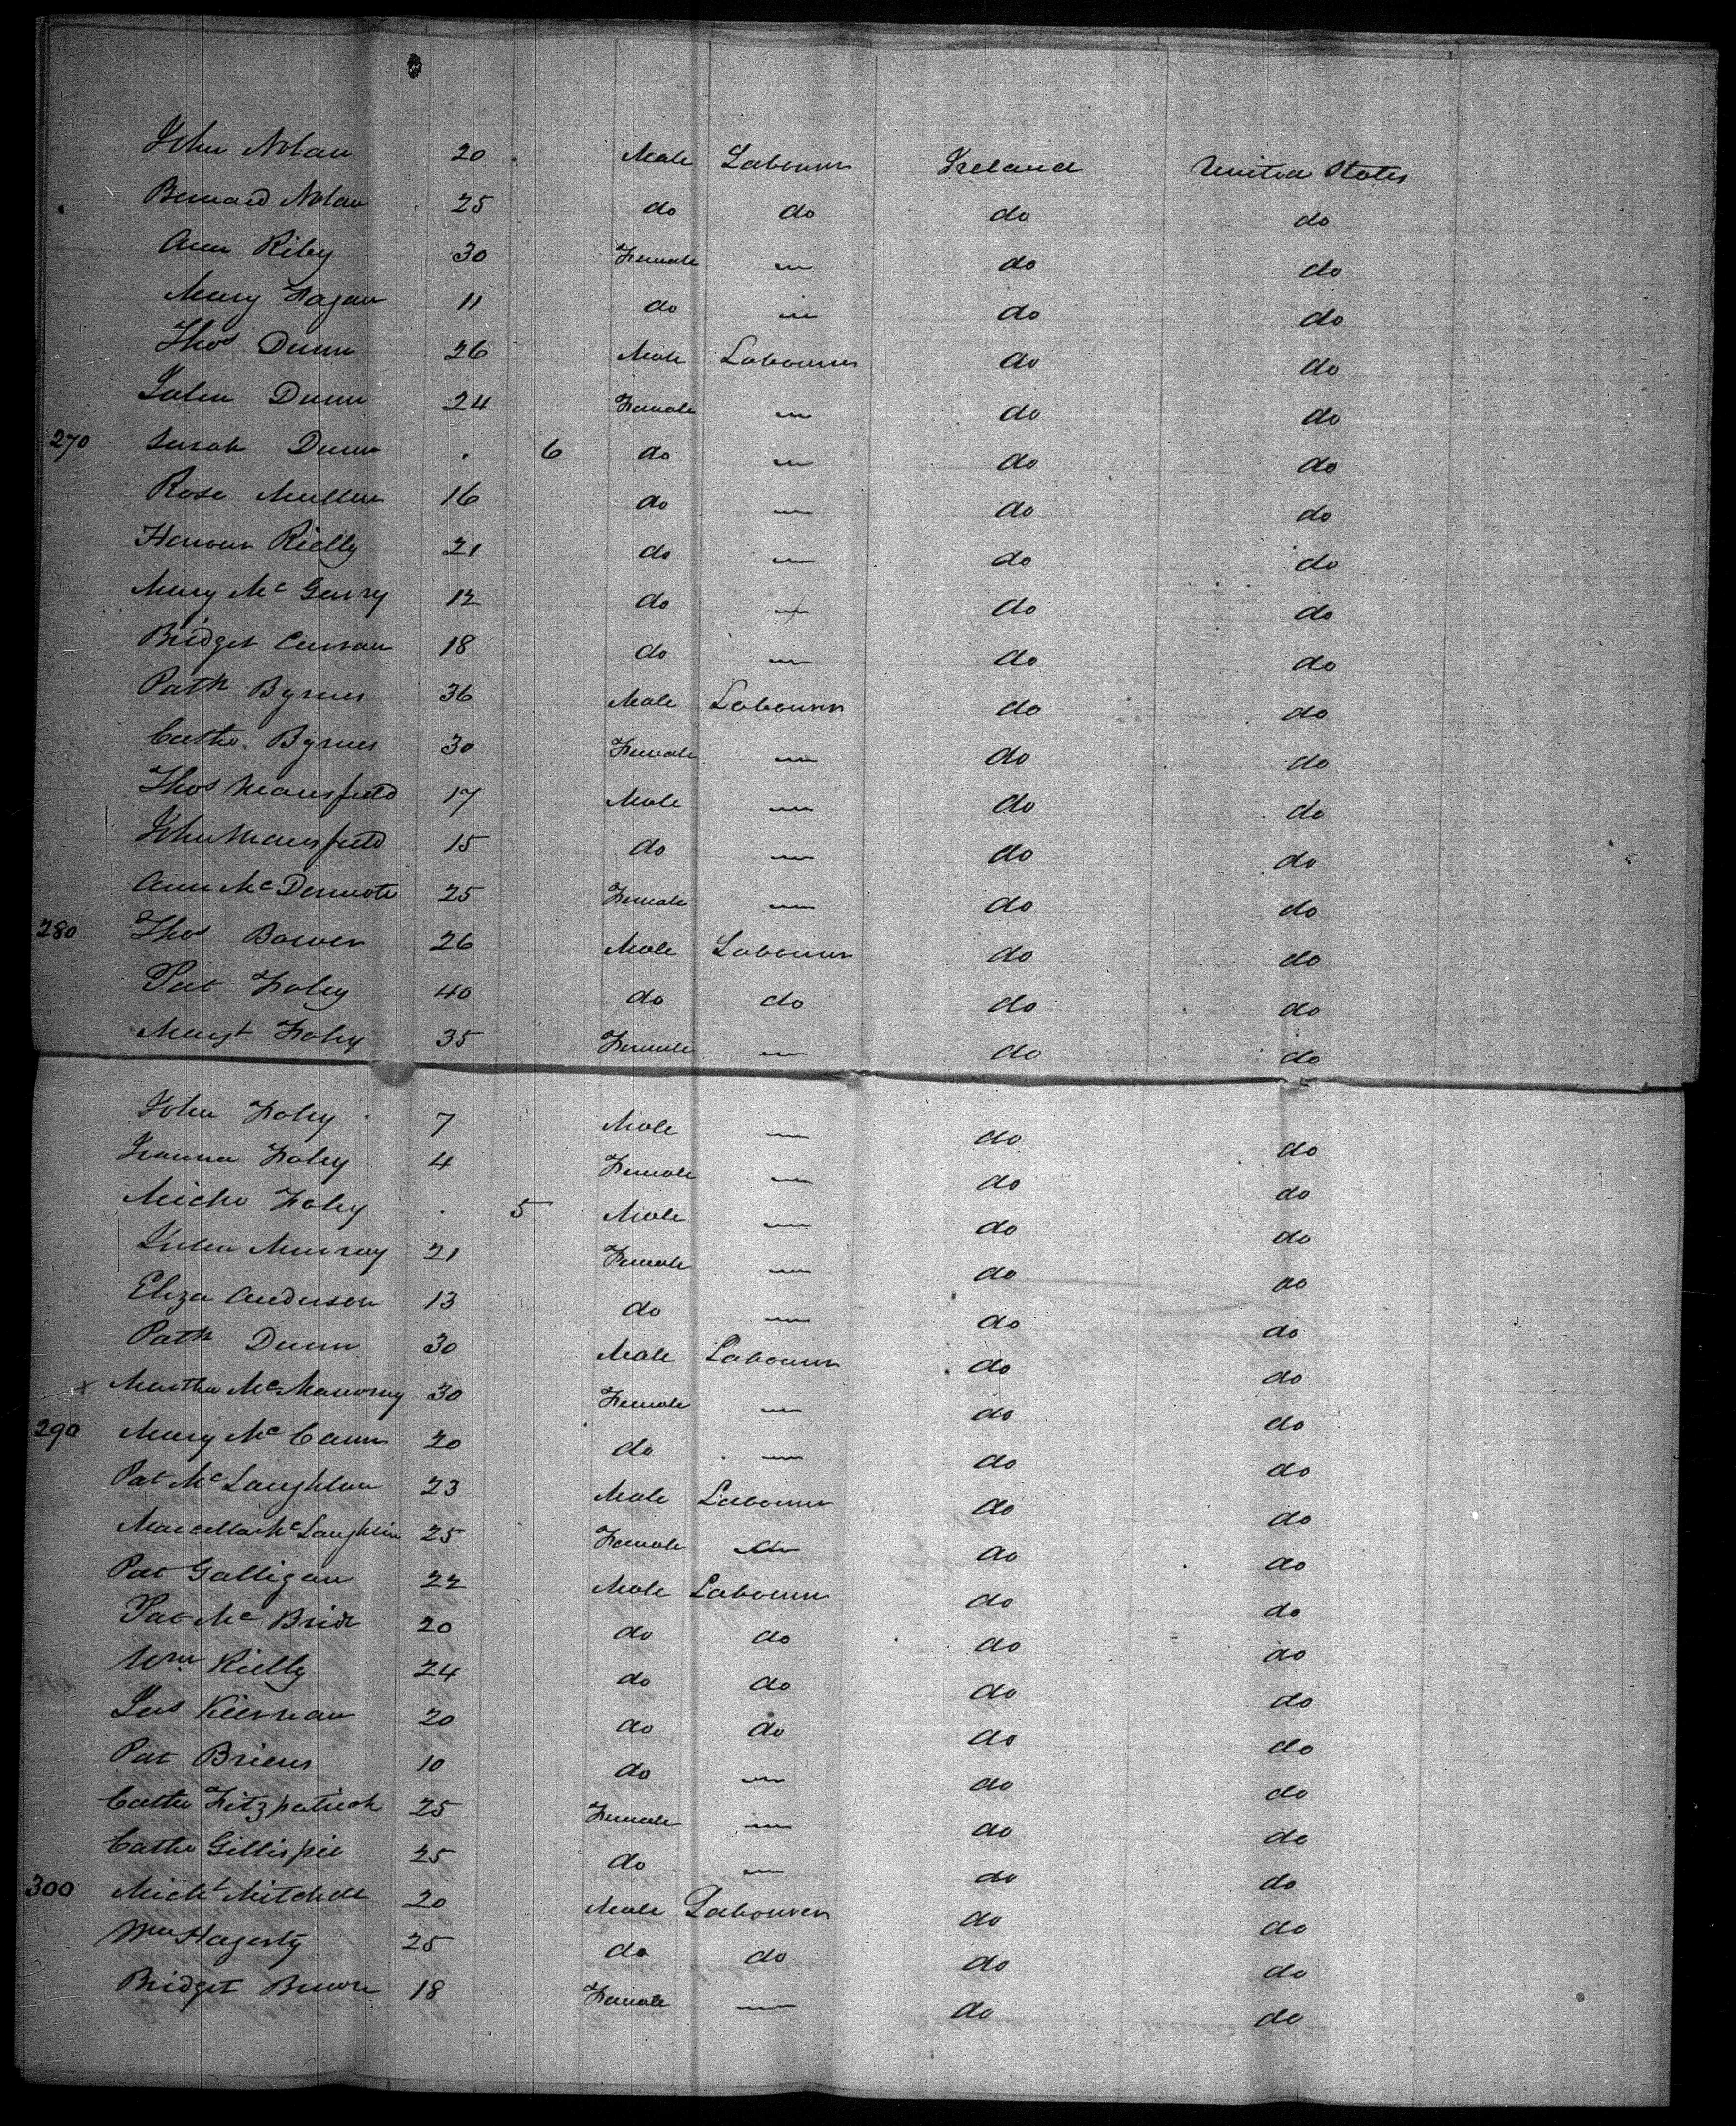 John Nolan 20 Male Labourer Ireland United States
Bernard Nolan 25 do do do do
Ann Riley 30 Female — do do
Mary Fagan 11 do — do do
Thos Dunn 26 Male Labourer do do
Dunn 24 Female — do do
270 Sarah Dunn . 6 do — do do
Rose Mullen 16 do — do do
Honour Rielly 21 do — do do
Mary Mc Garry 12 do — do do
Bridget Curran 18 do — do do
Patk Byrnes 36 Male Labourer do do
Cathe. Byrnes 30 Female — do do
Thos Mansfield 17 Male — do do
John Mansfield 15 do — do do
Ann Mc Dermott 25 Female — do do
280 Thos Bower 26 Male Labourer do do
Pat Foley 40 do do do do
Margt Foley 35 Female — do do
John Foley 7 Male — do do
Foley 4 Female — do do
Michl Foley . 5 Male — do do
Murray 21 Female — do do
Eliza Anderson 13 do — do do
Patk Dunn 30 Male Labourer do do
x Martha Mc 30 Female — do do
290 Mary Mc Cann 20 do — do do
Pat Mc Laughlan 23 Male Labourer do do
Marcella Mc Laughlin 25 Female — do do
Pat Galligan 22 Male Labourer do do
Pat Mc Bride 20 do do do do
Wm Rielly 24 do do do do
Kiernan 20 do do do do
Pat Briens 10 do — do do
Cathe Fitzpatrick 25 Female — do do
Cathe Gillispie 25 do — do do
300 Michl Mitchell 20 Male Labourer do do
Wm Hagerty 25 do do do do
Bridget 18 Female — do do